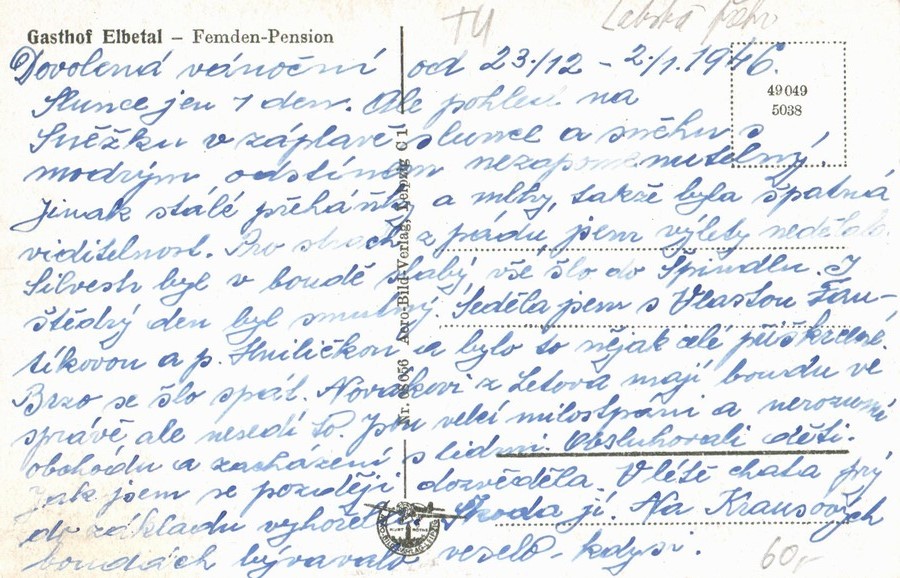 TU Labská
Gasthof Elbetal – Femden-Pension
Dovolená vánoční od 23./12 – 2./1. 1946.
49 049
5038
Slunce jen 1 den. Ale pohled na
Sněžku v záplavě slunce a sněhu s
modrým odstínem nezapomenutelný.
Jinak stálé přeháňky a mlhy, takže byla špatná
viditelnost. Pro strach z pádu jsem výlety nedělala.
Silvestr byl v boudě slabý, vše šlo do Špindlu. I
štědrý den byl smutný. Seděla jsem s Vlastou Fan-
tíkovou a p. Hniličkou a bylo to nějak celé přiškrcené.
Brzo se šlo spát. Novákovi z Letova mají boudu ve
správě, ale nesedí to. Jsou velcí milostpáni a nerozumí
obchodu a zacházení s lidmi. Obsluhovali děti.
Jak jsem se později dozvěděla. V létě chata prý
do základu vyhořela. Škoda jí. Na Krausových
boudách bývávalo veselo – kdysi.
Nr. 08056 Aero-Bild-Verlag, Leipzig C 1
60,-